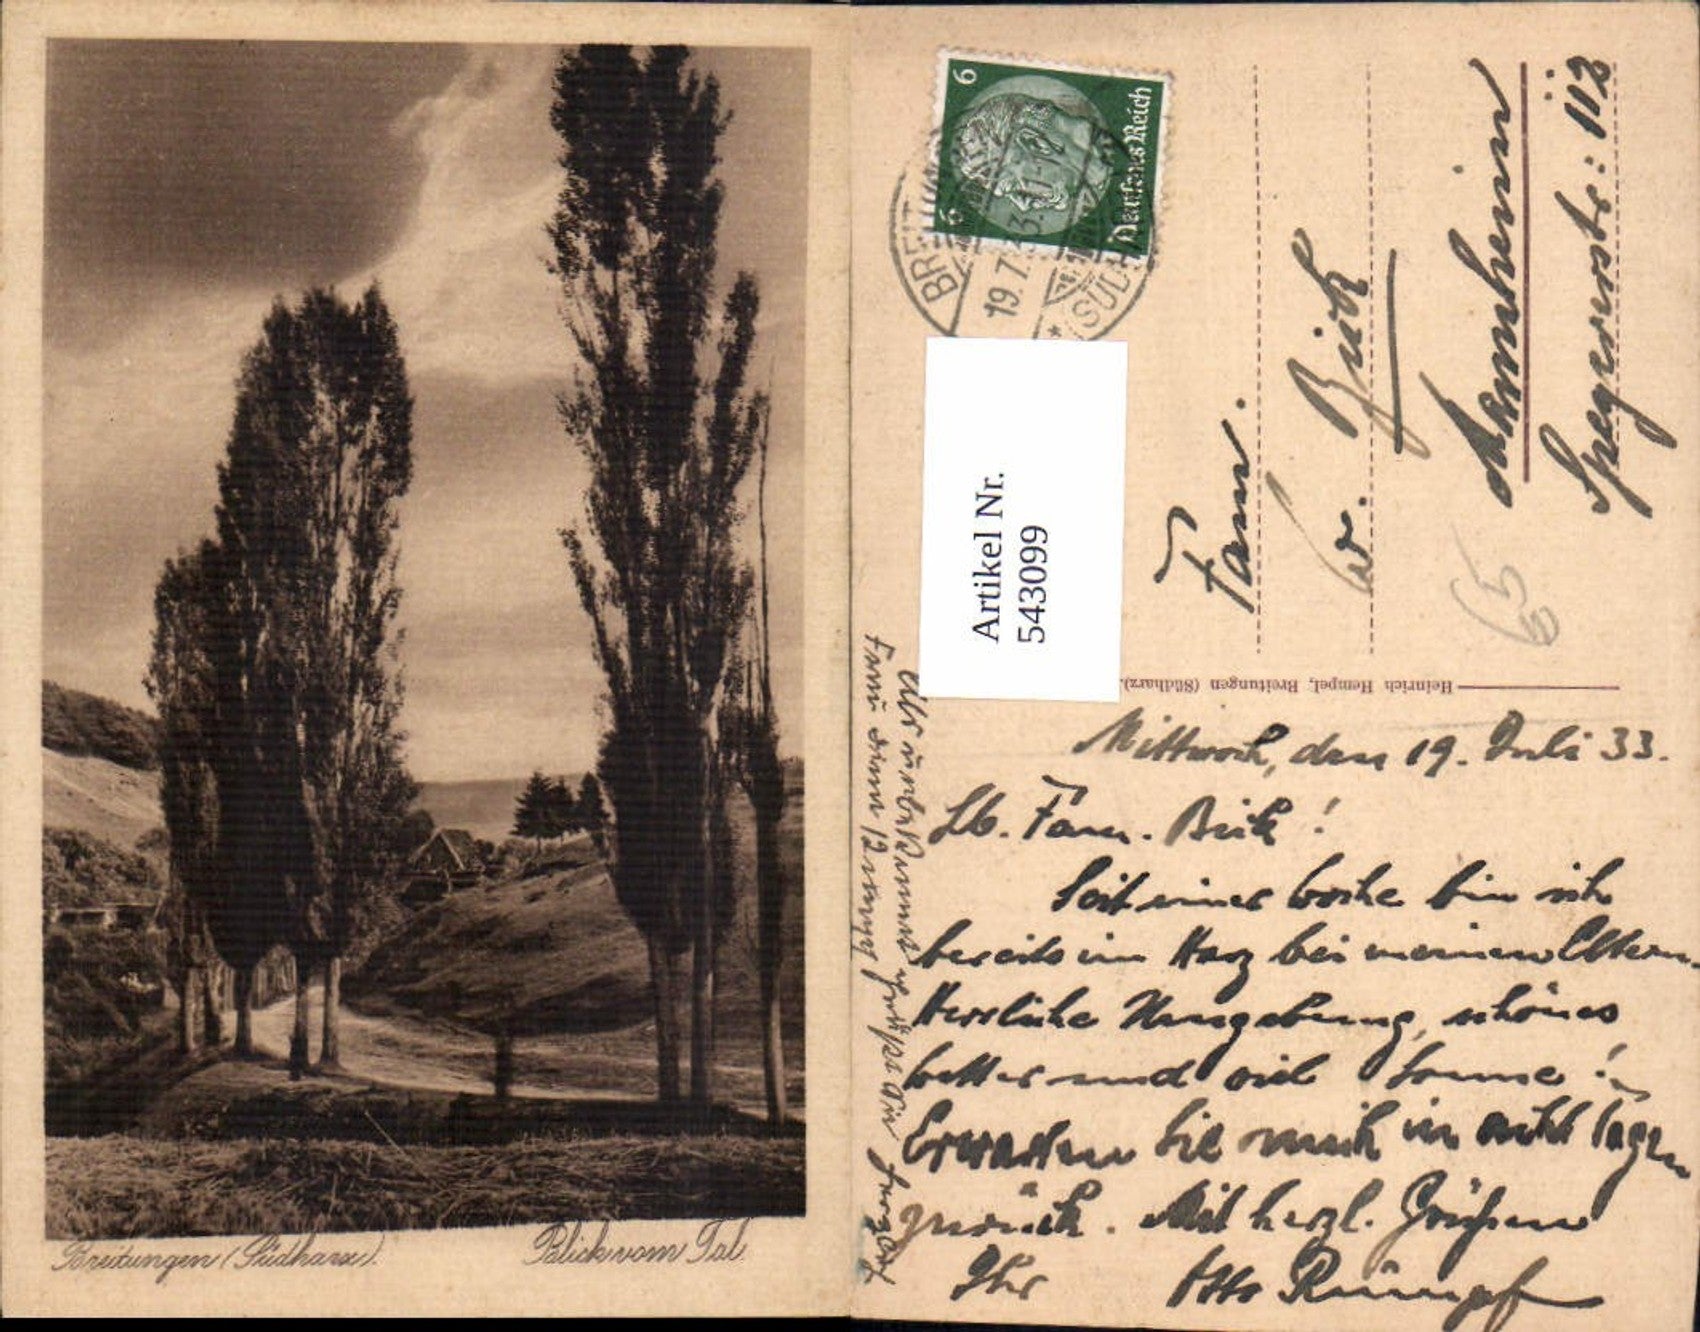 Breitungen (Südharz).
Blick vom Tal.
6
6
Deutsches Reich
BREITUNGEN
19.7.33.17-
(SÜDHARZ)
Artikel Nr.
543099
Fam.
Mannheim
Speyererstr: 112
65
Heinrich Hempel, Breitungen (Südharz).
Mittwoch, den 19. Juli 33.
Lb. Fam. Bick!
Seit einer Woche bin ich
bereits im Harz bei meinen Eltern.
Herrliche Umgebung, schönes
Wetter und viel Sonne!
Erwarten Sie mich in acht Tagen
zurück. Mit herzl. Grüßen
Ihr Otto Rumpf
Als unbekannte grüßt Sie herzl.
Frau Rumpf